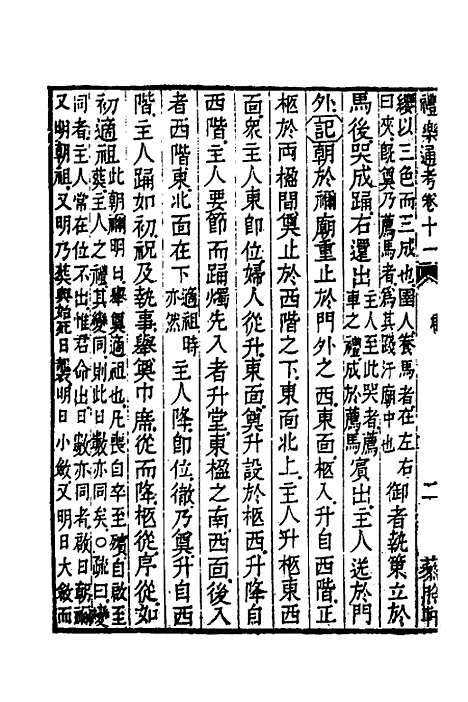 禮樂通考卷十一
二
纓以三色而三成也圉人養馬者在左右
曰夾旣奠乃薦馬者爲其踐汙廟中也
御者執策立於
馬後哭成踊右還出
主人於此哭者薦
車之禮成於薦馬
賓出主人送於門
外記朝於禰廟重止於門外之西東面柩入升自西階正
柩於兩楹間奠止於西階之下東面北上主人升柩東西
面衆主人東即位婦人從升東面奠升設於柩西升降自
西階主人要節而踊燭先入者升堂東楹之南西面後入
者西階東北面在下
適祖時
亦然
主人降即位徹乃奠升自西
階主人踊如初祝及執事舉奠巾席從而降柩從序從如
初適祖
此朝禰明日舉奠適祖也凡喪自卒至殯自啟至
葬主人之禮其變同則此日數亦同矣○疏曰變
同者主人常在位不出惟君命出日數亦同者啟日朝禰
又明朝祖又明乃葬與始死日襲明日小斂又明日大斂而